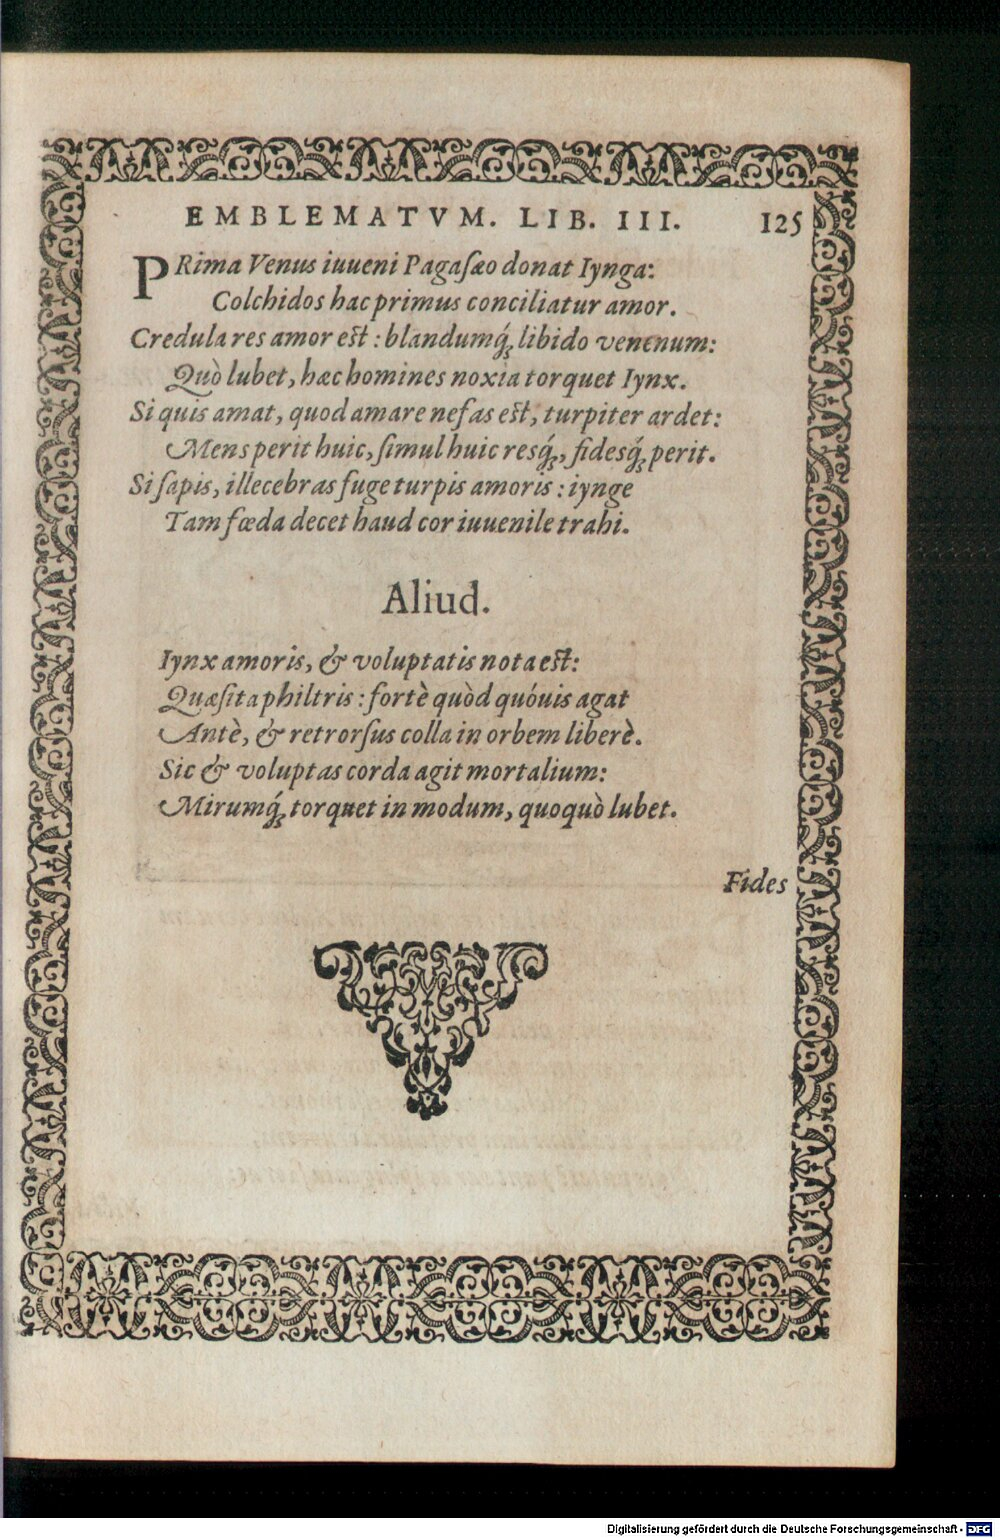 EMBLEMATVM. LIB. III. 125
PRima Venus iuueni Pagaſæo donat Iynga:
Colchidos hac primus conciliatur amor.
Credula res amor eſt: blandumq́ꝫ libido venenum:
Quò lubet, hæc homines noxia torquet Iynx.
Si quis amat, quod amare nefas eſt, turpiter ardet:
Mens perit huic, ſimul huic resq́ꝫ, fidesq́ꝫ perit.
Si ſapis, illecebras fuge turpis amoris: iynge
Tam fœda decet haud cor iuuenile trahi.
Aliud.
Iynx amoris, & voluptatis nota eſt:
Quæſita philtris: fortè quòd quóuis agat
Antè, & retrorſus colla in orbem liberè.
Sic & voluptas corda agit mortalium:
Mirumq́ꝫ torquet in modum, quoquò lubet.
Fides
Digitalisierung gefördert durch die Deutsche Forschungsgemeinschaft - DFG